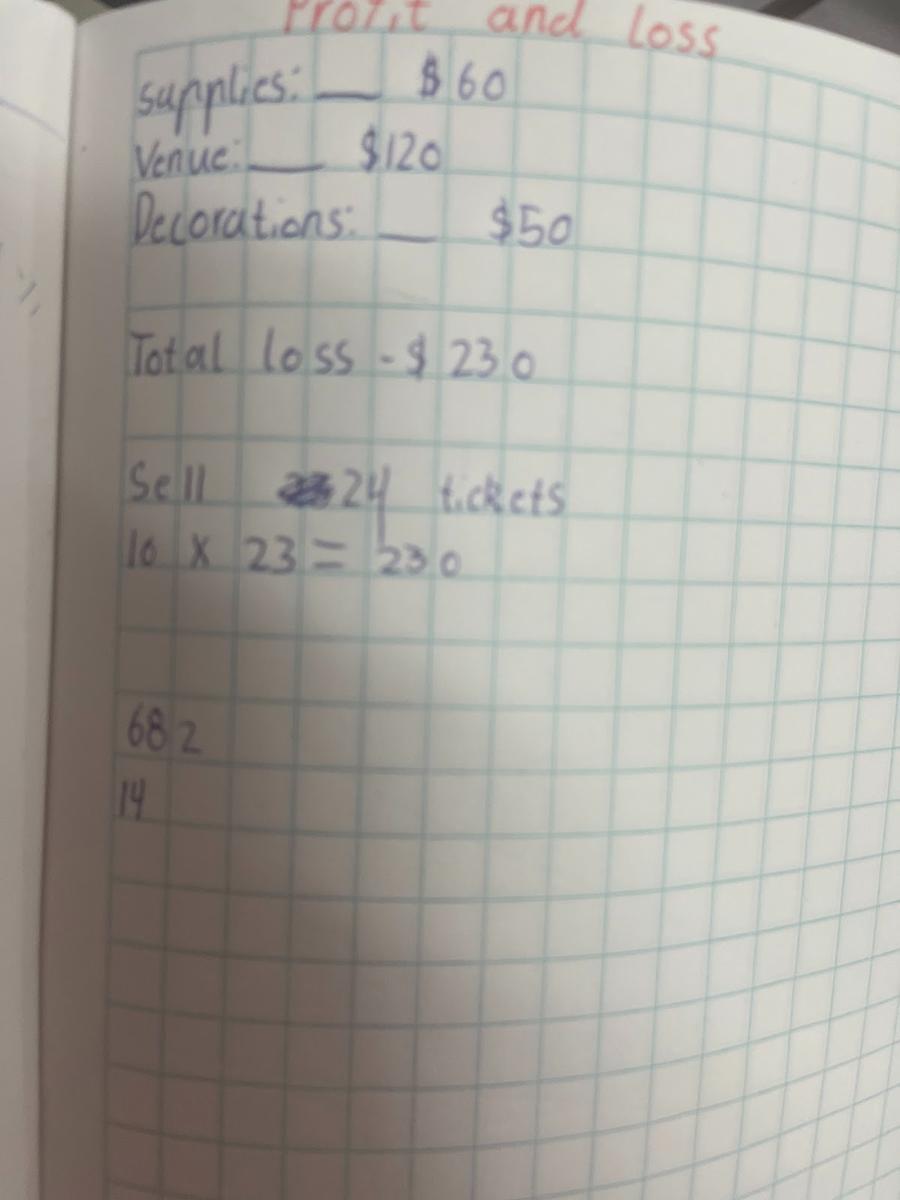 Profit and loss
supplies: __ $60
Venue: __ $120
Decorations: __ $50
Total loss - $230
Sell 24 tickets
10 x 23 = 230
682
14